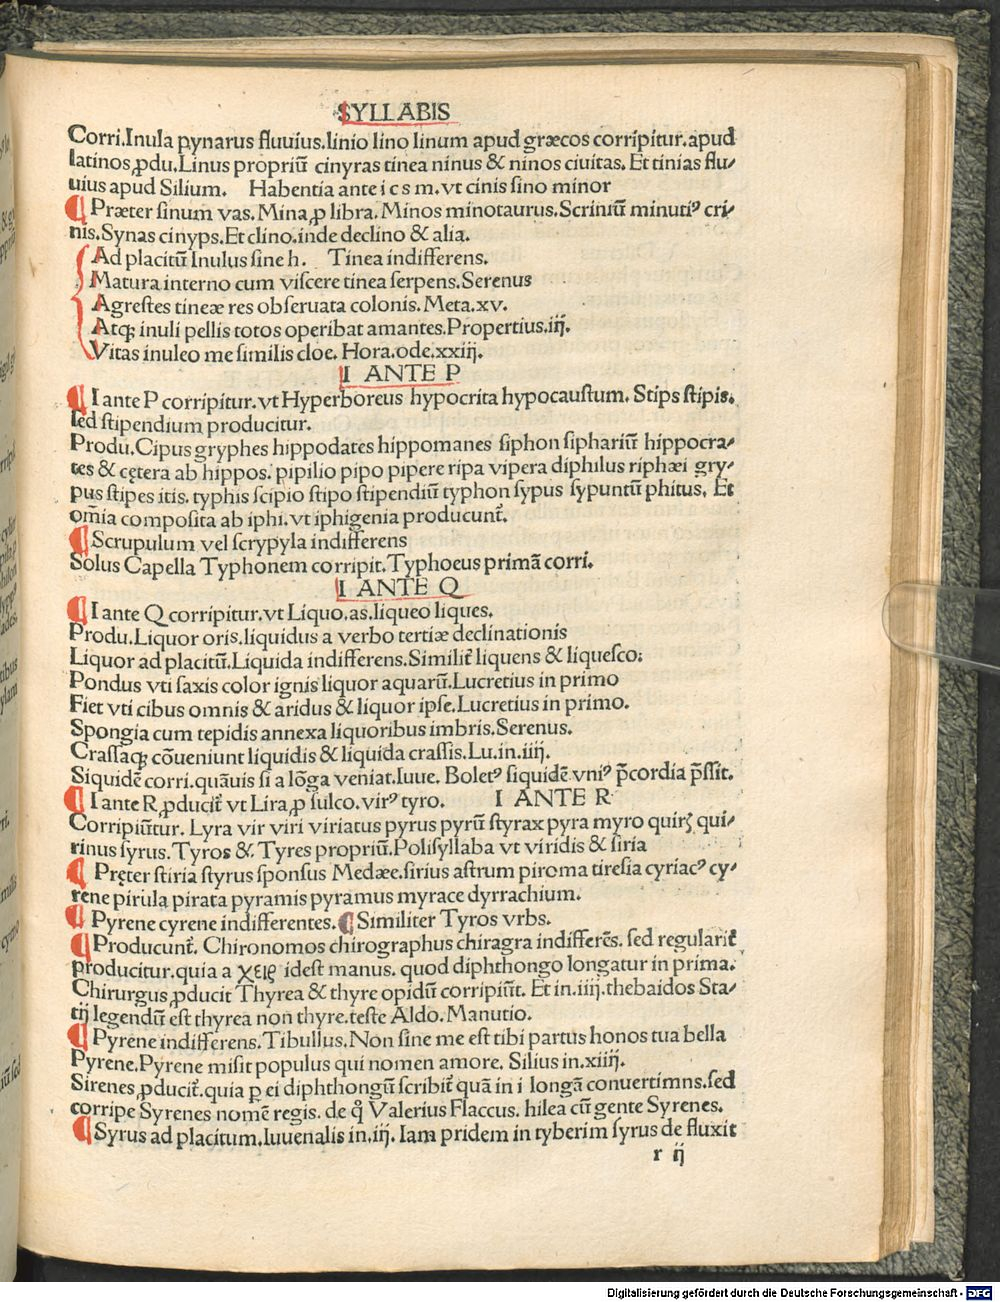 SYLLABIS
Corri.Inula pynarus fluuius.linio lino linum apud græcos corripitur.apud
latinos ꝓdu.Linus propriū cinyras tinea ninus & ninos ciuitas. Et tinias flu⸗
uius apud Silium. Habentia ante i c s m. vt cinis sino minor
¶ Præter sinum vas. Mina ꝓ libra. Minos minotaurus. Scriniū minutiꝰ cri⸗
nis. Synas cinyps. Et clino.inde declino & alia.
Ad placitū Inulus sine h. Tinea indifferens.
Matura interno cum viscere tinea serpens. Serenus
Agrestes tineæ res obseruata colonis. Meta.xv.
Atqꝫ inuli pellis totos operibat amantes. Propertius.iij.
Vitas inuleo me similis cloe. Hora.ode.xxiij.
I ANTE P
¶ I ante P corripitur.vt Hyperboreus hypocrita hypocaustum. Stips stipis.
sed stipendium producitur.
Produ.Cipus gryphes hippodates hippomanes siphon siphariū hippocra⸗
tes & cętera ab hippos. pipilio pipo pipere ripa vipera diphilus riphæi gry⸗
pus stipes itis. typhis scipio stipo stipendiū typhon sypus sypuntū phitus. Et
om̄ia composita ab iphi.vt iphigenia producunt̄.
¶ Scrupulum vel scrypyla indifferens
Solus Capella Typhonem corripit. Typhoeus primā corri.
I ANTE Q
¶ I ante Q corripitur.vt Liquo.as.liqueo liques.
Produ.Liquor oris.liquidus a verbo tertiæ declinationis
Liquor ad placitū.Liquida indifferens.Similit̄ liquens & liquesco:
Pondus vti saxis color ignis liquor aquarū.Lucretius in primo
Fiet vti cibus omnis & aridus & liquor ipse.Lucretius in primo.
Spongia cum tepidis annexa liquoribus imbris.Serenus.
Crassaqꝫ cōueniunt liquidis & liquida crassis.Lu.in.iiij.
Siquidē corri.quāuis si a lōga veniat.Iuue. Boletꝰ siquidē vniꝰ p̄cordia p̄ssit.
¶ I ante R ꝓducit̄ vt Lira ꝓ sulco.virꝰ tyro. I ANTE R
Corripiūtur. Lyra vir viri viriatus pyrus pyrū styrax pyra myro quirꝫ qui⸗
rinus syrus. Tyros & Tyres propriū.Polisyllaba vt viridis & siria
¶ Pręter stiria styrus sponsus Medææ.sirius astrum piroma tiresia cyriacꝰ cy⸗
rene pirula pirata pyramis pyramus myrace dyrrachium.
¶ Pyrene cyrene indifferentes. ¶ Similiter Tyros vrbs.
¶ Producunt̄. Chironomos chirographus chiragra indifferēs. sed regularit̄
producitur.quia a χειρ idest manus. quod diphthongo longatur in prima.
Chirurgus ꝓducit Thyrea & thyre opidū corripiūt. Et in.iiij.thebaidos Sta⸗
tij legendū est thyrea non thyre.teste Aldo. Manutio.
¶ Pyrene indifferens. Tibullus. Non sine me est tibi partus honos tua bella
Pyrene.Pyrene misit populus qui nomen amore. Silius in.xiiij.
Sirenes ꝓducit̄.quia p ei diphthongū scribit̄ quā in i longā conuertimns.sed
corripe Syrenes nomē regis. de q̊ Valerius Flaccus. hilea cū gente Syrenes.
¶ Syrus ad placitum.Iuuenalis in.iij. Iam pridem in tyberim syrus de fluxit
r ij
Digitalisierung gefördert durch die Deutsche Forschungsgemeinschaft - DFG